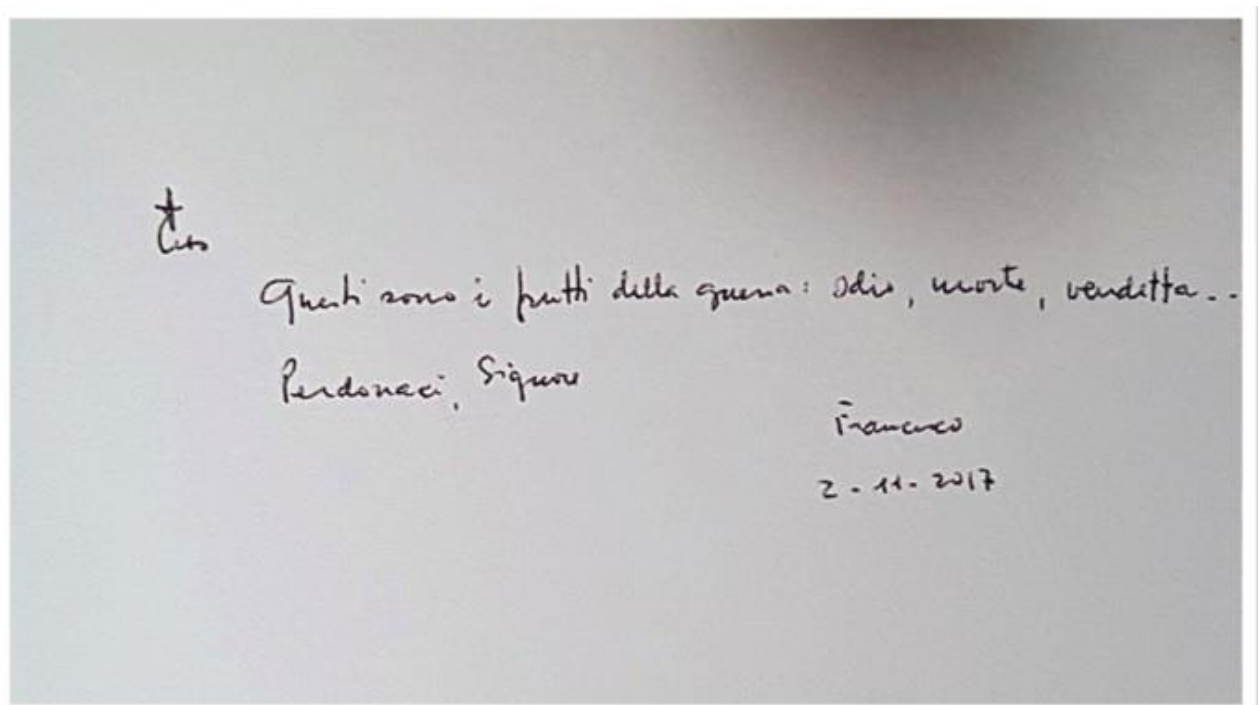 Questi sono i frutti della guerra: odio, morte, vendetta..
Perdonaci, Signore
Francesco
2-11-2017